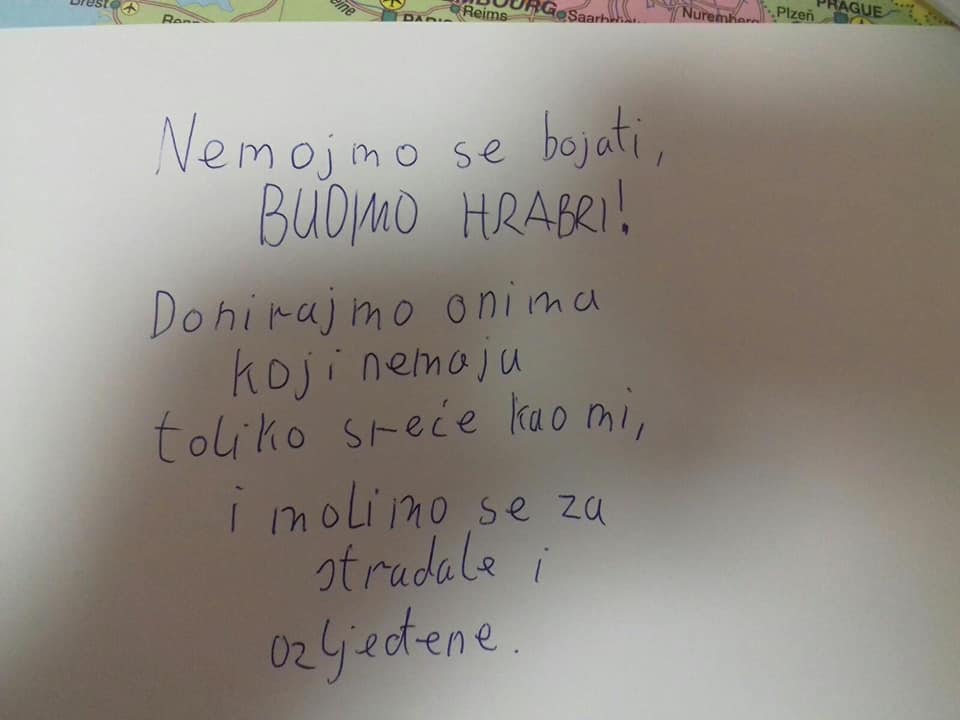 Brest
Reims
Saarbrück
Nuremberg
Plzeň
PRAGUE
Nemojmo se bojati,
BUDIMO HRABRI!
Donirajmo onima
koji nemaju
toliko sreće kao mi,
i molimo se za
stradale i
ozljeđene.